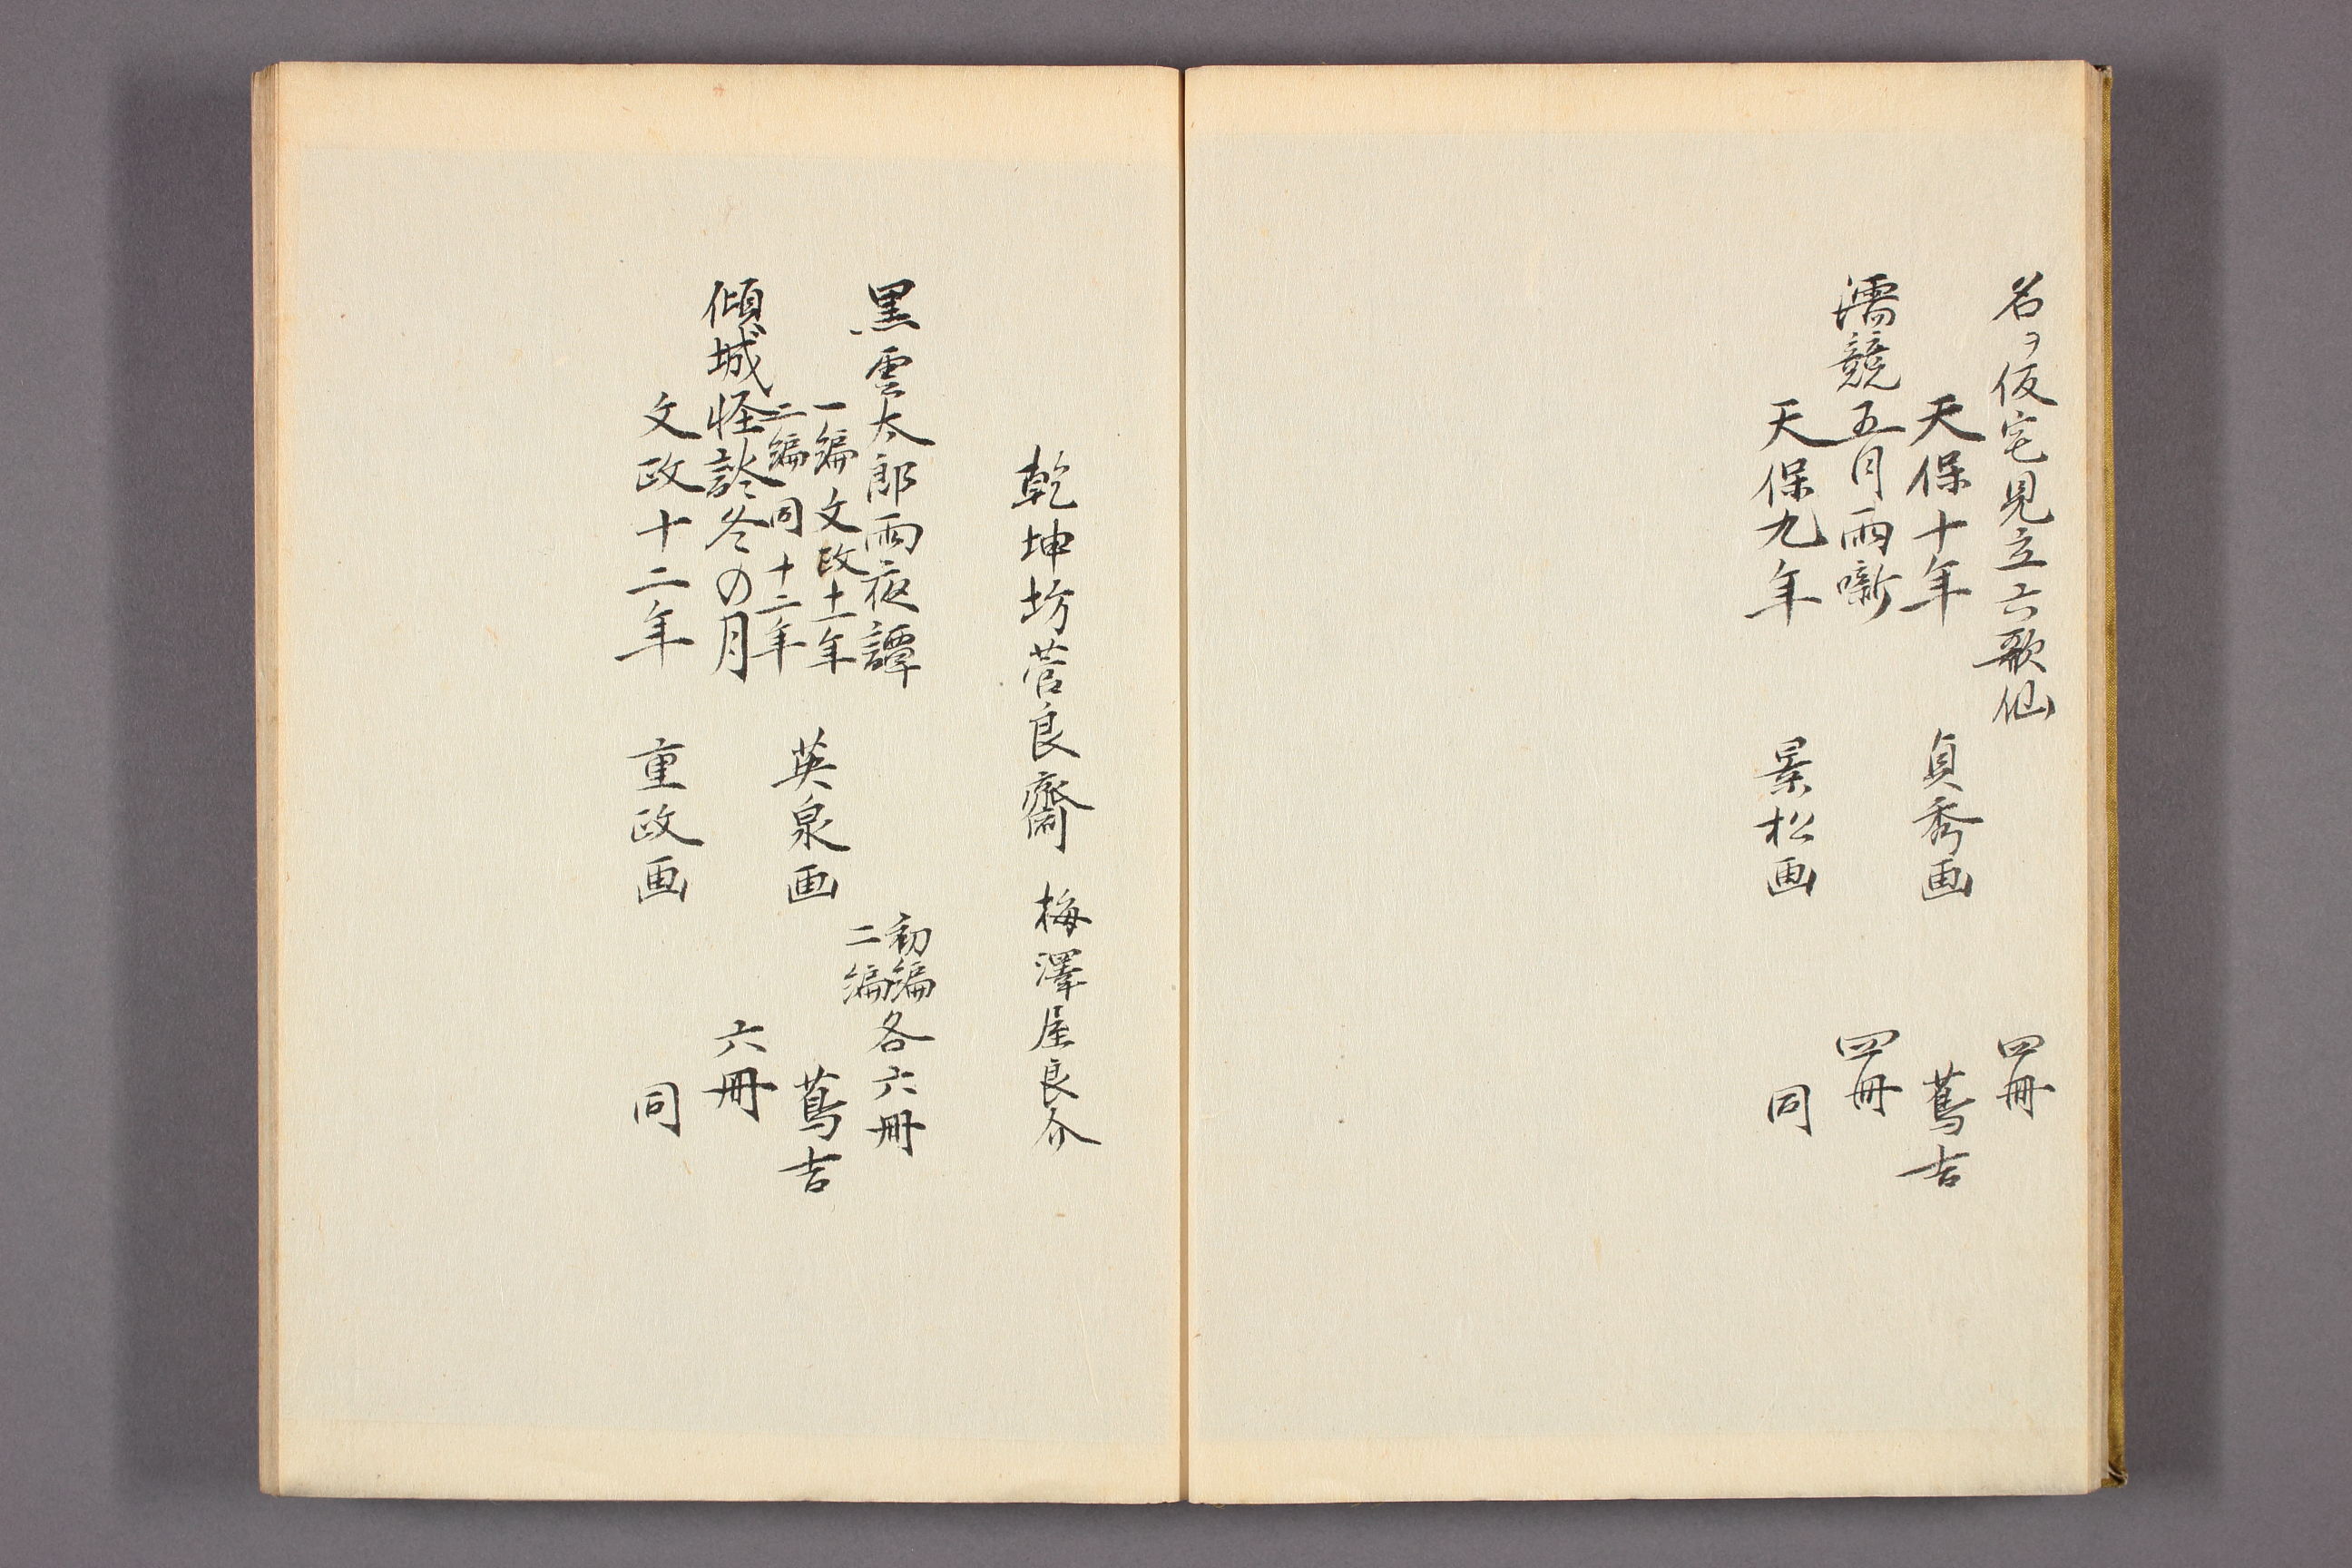 名ヲ仮宅見立六歌仙 四冊
天保十年 貞秀画 蔦吉
濡競五月雨噺 四冊
天保九年 景松画 同
乾坤坊菅良齋 梅澤屋良介
黒雲太郎雨夜譚 初編 二編 各六冊
一編 文政十一年
二編 同 十二年 英泉画 蔦吉
傾城怪談冬の月 六冊
文政十二年 重政画 同